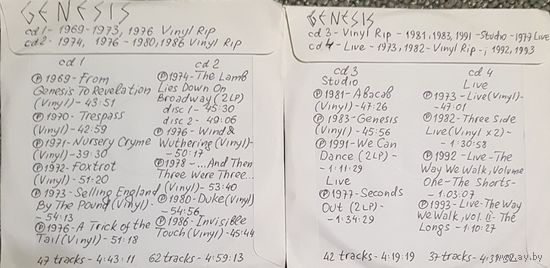 GENESIS
cd 1 - 1969-1973, 1976 Vinyl Rip
cd 2 - 1974, 1976 - 1980, 1986 Vinyl Rip
cd 1
Ⓟ 1969 - From
Genesis To Revelation
(Vinyl) - 43:51
Ⓟ 1970 - Trespass
(Vinyl) - 42:59
Ⓟ 1971 - Nursery Cryme
(Vinyl) - 39:30
Ⓟ 1972 - Foxtrot
(Vinyl) - 51:20
Ⓟ 1973 - Selling England
By The Pound (Vinyl) -
- 54:13
Ⓟ 1976 - A Trick of the
Tail (Vinyl) - 51:18
47 tracks - 4:43:11
cd 2
Ⓟ 1974 - The Lamb
Lies Down On
Broadway (2LP)
disc 1 - 45:30
disc 2 - 49:06
Ⓟ 1976 - Wind &
Wuthering (Vinyl) -
- 50:17
Ⓟ 1978 - ...And Then
Three Were Three...
(Vinyl) - 53:40
Ⓟ 1980 - Duke (Vinyl)
- 54:56
Ⓟ 1986 - Invisible
Touch (Vinyl) - 45:44
62 tracks - 4:59:13
GENESIS
cd 3 - Vinyl Rip - 1981, 1983, 1991 - Studio - 1977 Live
cd 4 - Live - 1973, 1982 - Vinyl Rip - ; 1992, 1993
cd 3
Studio
Ⓟ 1981 - Abacab
(Vinyl) - 47:26
Ⓟ 1983 - Genesis
(Vinyl) - 45:56
Ⓟ 1991 - We Can
Dance (2LP) -
- 1:11:29
Live
Ⓟ 1977 - Seconds
Out (2LP) -
- 1:34:29
42 tracks - 4:19:19
cd 4
Live
Ⓟ 1973 - Live (Vinyl) -
- 47:01
Ⓟ 1982 - Three Side
Live (Vinyl x2) -
- 1:30:58
Ⓟ 1992 - Live - The
Way We Walk, Volume
One - The Shorts -
- 1:03:07
Ⓟ 1993 - Live - The Way
We Walk, vol. II - The
Longs - 1:10:27
37 tracks -